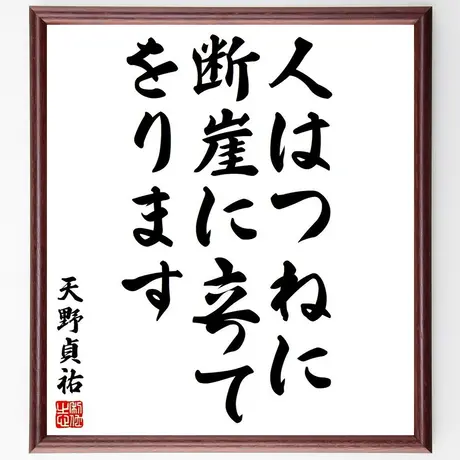 人はつねに
断崖に立って
をります
天野貞祐